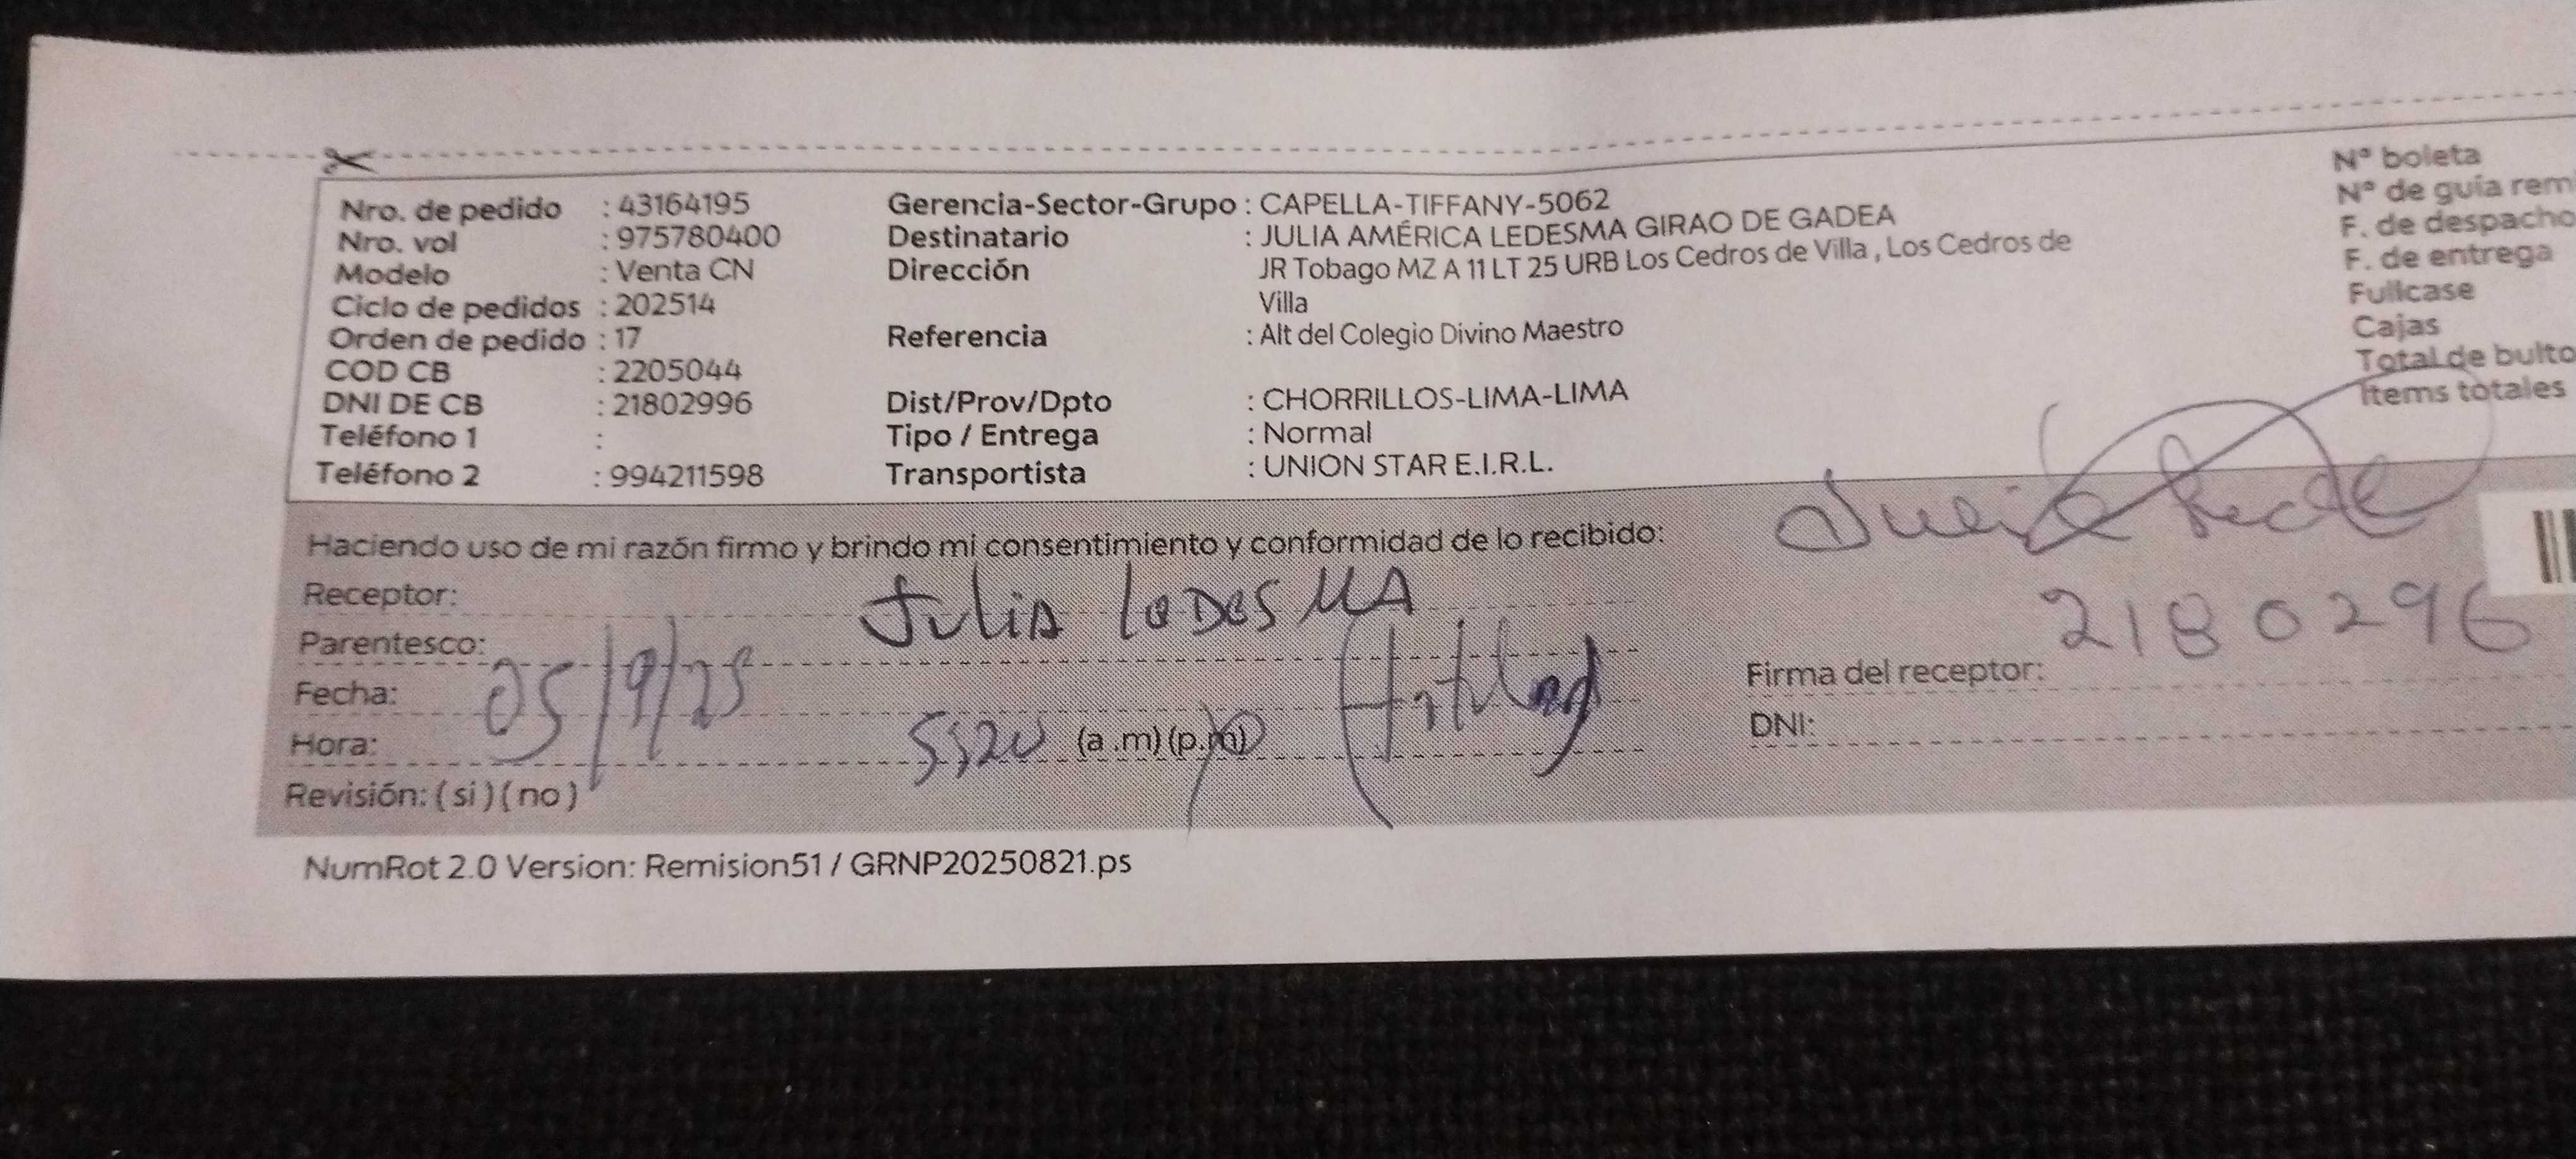 Nro. de pedido : 43164195
Nro. vol : 975780400
Modelo : Venta CN
Ciclo de pedidos : 202514
Orden de pedido : 17
COD CB : 2205044
DNI DE CB : 21802996
Teléfono 1 :
Teléfono 2 : 994211598
Gerencia-Sector-Grupo : CAPELLA-TIFFANY-5062
Destinatario : JULIA AMÉRICA LEDESMA GIRAO DE GADEA
Dirección JR Tobago MZ A 11 LT 25 URB Los Cedros de Villa , Los Cedros de
Villa
Referencia : Alt del Colegio Divino Maestro
Dist/Prov/Dpto : CHORRILLOS-LIMA-LIMA
Tipo / Entrega : Normal
Transportista : UNION STAR E.I.R.L.
N° boleta
N° de guía remi
F. de despacho
F. de entrega
Fullcase
Cajas
Total de bulto
Items totales
Haciendo uso de mi razón firmo y brindo mi consentimiento y conformidad de lo recibido:
Receptor: Julia LeDesMA
Parentesco:
Fecha: 05/9/25
Hora: 5:20 (a .m) (p.m)
Revisión: ( si ) ( no )
2180296
Firma del receptor:
DNI:
NumRot 2.0 Version: Remision51 / GRNP20250821.ps